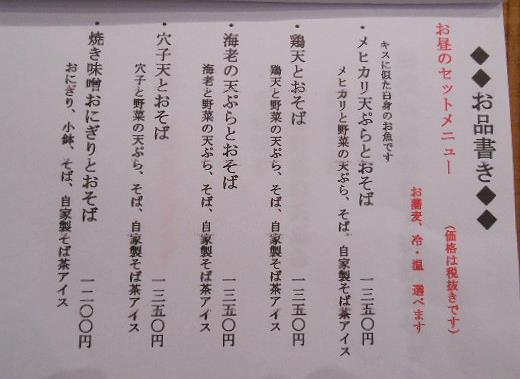 ◆◆お品書き◆◆
お昼のセットメニュー
(価格は税抜きです)
お蕎麦、冷・温 選べます
・メヒカリ天ぷらとおそば 一三五〇円
キスに似た白身のお魚です
メヒカリと野菜の天ぷら、そば、自家製そば茶アイス
・鶏天とおそば 一三五〇円
鶏天と野菜の天ぷら、そば、自家製そば茶アイス
・海老の天ぷらとおそば 一三五〇円
海老と野菜の天ぷら、そば、自家製そば茶アイス
・穴子天とおそば 一三五〇円
穴子と野菜の天ぷら、そば、自家製そば茶アイス
・焼き味噌おにぎりとおそば 一二〇〇円
おにぎり、小鉢、そば、自家製そば茶アイス